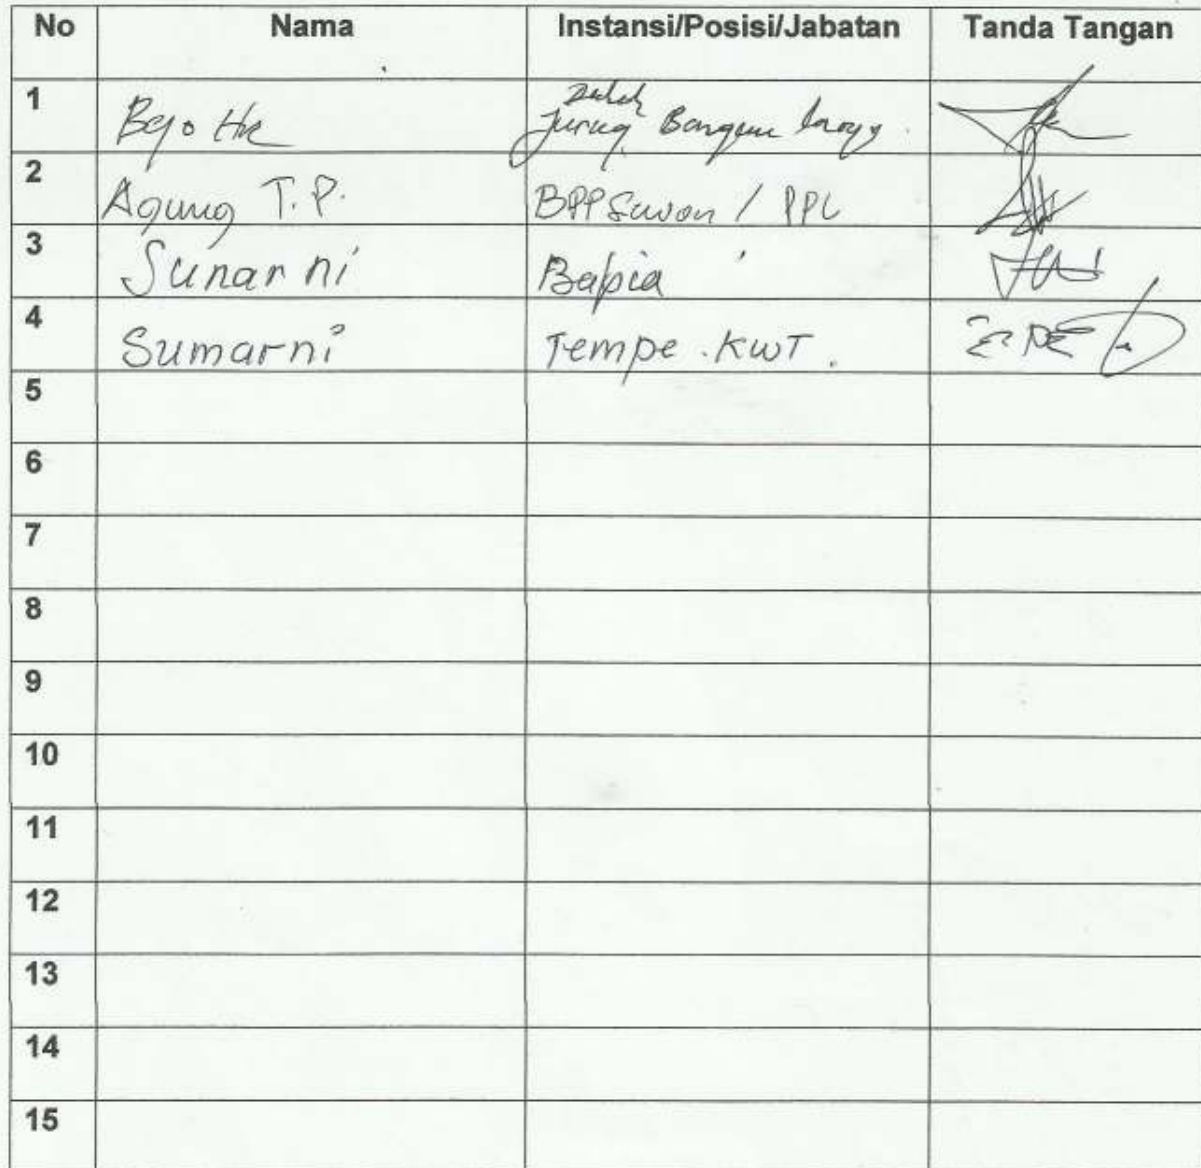 No Nama Instansi/Posisi/Jabatan Tanda Tangan
1 Bejo Jurug Bangun
2 Agung T.P. BPP Sewon / PPL
3 Sunarni Bakpia
4 Sumarni Tempe . KWT .
5
6
7
8
9
10
11
12
13
14
15